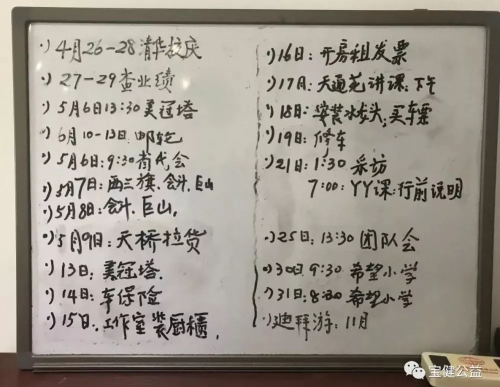 ·) 4月26-28清华校庆
·) 27-29查业绩
·) 5月6日13:30美冠塔
·) 6月10-13日.邮轮
·) 5月6日:9:30省代会
·) 5月7日:西三旗、合斗、巨山
·) 5月8日:合斗、巨山,
·) 5月9日:天桥拉货
·) 13日:美冠塔.
·) 14日:车保险
·) 15日:工作室装厨櫃,
·) 16日:开房租发票
·) 17日:天通苑讲课:下午
·) 18日:安装水龙头,买车票
·) 19日:修车
·) 21日:1:30 采访
7:00:YY课:行前说明
·) 25日:13:30团队会
·) 30日9:30希望小学
·) 31日:8:30希望小学
·) 迪拜游:11月
宝健公益